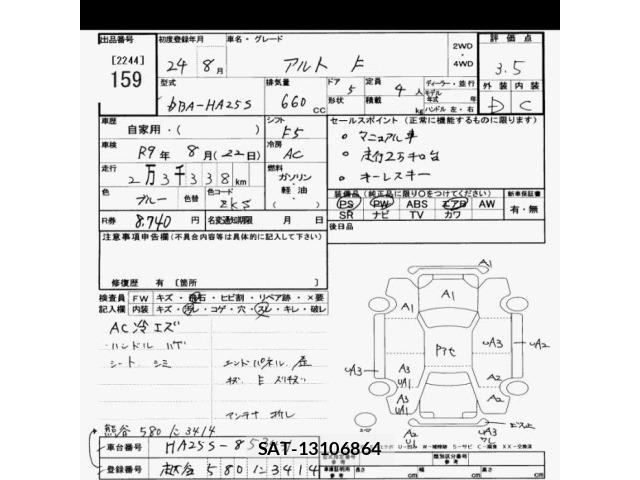 出品番号 初度登録年月 車名・グレード 2WD 評価点
[2244] 24年 8月 アルト F ・4WD 3.5
159 型式 排気量 ドア 5 定員 4人 ディーラー・並行 外装 内装
DBA-HA25S 660 CC 形状 積載 kg ハンドル 左・右 D C
車歴 自家用・( ) シフト F5 セールスポイント(正常に機能するものに限ります)
車検 R9年 8月(22日) 冷房 AC ○ マニュアル車
走行 2万3千338km 燃料 ガソリン 軽油 ( ) ○ 走行2万キロ台
色 ブルー 色替 色コード ZKS ○ キーレスキー
装備品(純正品に限り○をつけてください) 新車保証書
PS PW ABS エアB AW 有・無
SR ナビ TV カワ
R券 8.740円 名変通知期限 月 日 後日品
注意事項申告欄(不具合内容等は具体的に記入して下さい)
修復歴 有 [箇所 ]
検査員 FW キズ・飛石・ヒビ割・リペア跡・×要
記入欄 内装 キズ・汚レ・コゲ・穴・スレ・キレ・破レ
AC冷エズ
・ハンドル ハゲ
・シート シミ
エンドパネル
アンテナ 折レ
A1
A1 A1
アセ
UA3 A2 UA3 UA2
A3 UA1 A3 UA1 A2
A2 U1 UA3
熊谷 580 に 3414
車台番号 HA25S-85
SAT-13106864
登録番号 熊谷 580 に 3414
車証証明用 参考 長さ cm 幅 cm 高さ cm